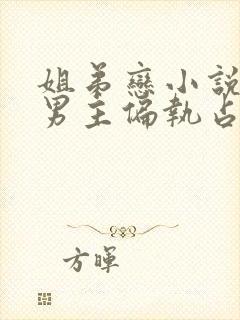 姐弟戀小說
男主偏執占
方暉